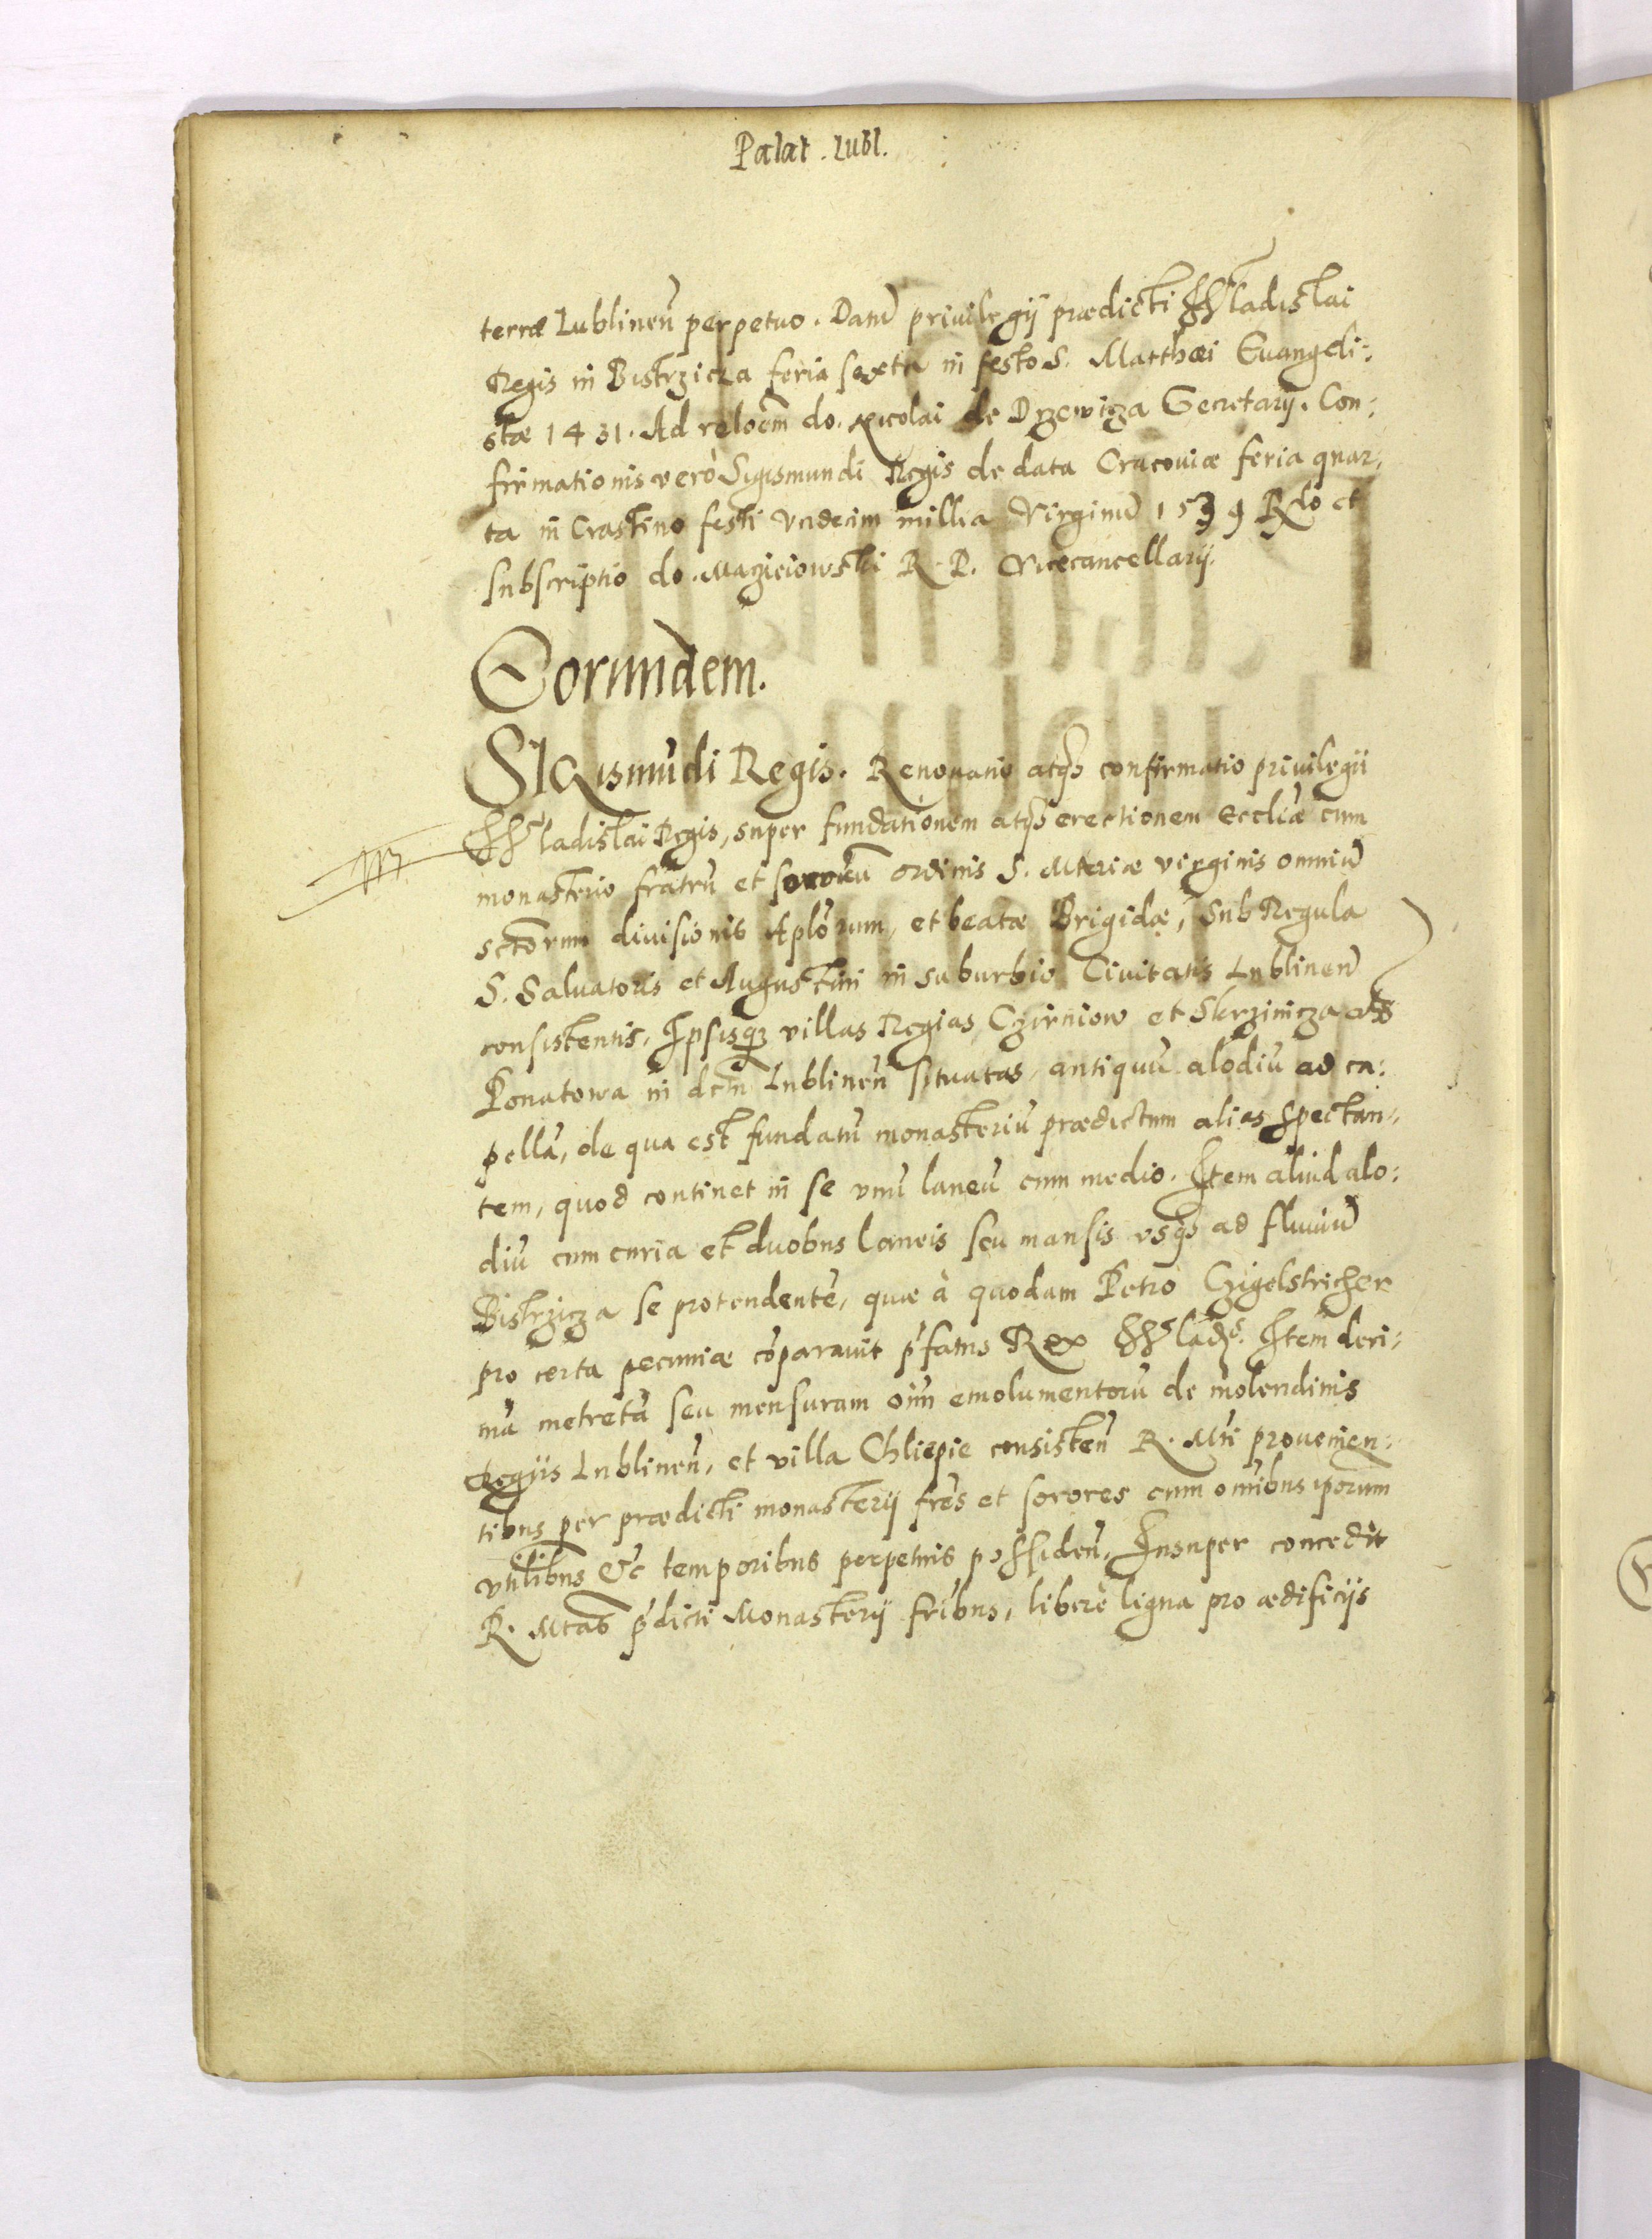 Palat. Lubl.
terræ Lublinen̄ perpetuo. Datū privilegij prædicti Wladislai
Regis in Bistrzicza feria sexta in festo S. Matthæi Euangeli:
stæ 1431. Ad reloēm do. Nicolai de Drzewicza Secretarij. Con:
firmationis verò Sigismundi Regis de data Cracouiæ feria quar:
ta in Crastino festi vndecim millia Virginū 1539 Rlō et
subscriptio do. Maczieiowski R. P. Vicecancellarij.
Eorundem.
SIGismūdi Regis. Renouatio atq3 confirmatio priuilegii
Wladislai Regis, super fundationem atq3 erectionem Eccliæ cum
monasterio fratrū et sororū ordinis S. Mariæ virginis omniū
sctōrum diuisionis Aplōrum, et beatæ Brigidæ, sub Regula
S. Saluatoris et Augustini in suburbio Ciuitatis Lublinen̄
consistentis, Ipsisq3 villas Regias Czirniow et Skrzinicza als
Ponatowa in dctū Lublinen̄ situatas, antiquū alodiū ad ca:
pellā, de qua est fundatū monasteriū prædictum alias spectan:
tem, quod continet in se vnū laneū cum medio. Item aliud alo:
diū cum curia et duobus laneis seu mansis vsq3 ad fluuiū
Bistrzicza se protendentē, quæ à quodam Petro Czigelstricher
pro certa pecuniæ cōparauit p̄fatus Rex Wlad. Item deci:
mā metretā seu mensuram oīm emolumentorū de molendinis
Regijs Lublinen̄, et villa Chliepie consisten̄ R. Mti prouenien:
tibus per prædicti monasterij frēs et sorores cum omībus ipōrum
vtilibus &c temporibus perpetuis possiden̄, Insuper concedit
R. Mtas p̄dicti Monasterij frībus, liberè ligna pro ædificijs